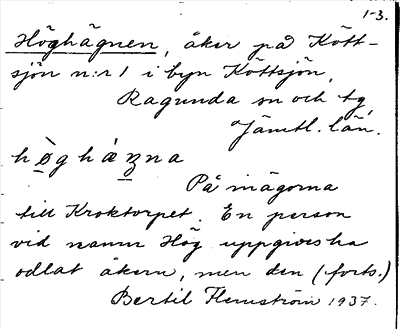 1-3.
Höghägnen, åker på Kött-
sjön n:r 1 i byn Köttsjön,
Ragunda sn och tg
Jämtl. län.
På inägorna
till Kroktorpet. En person
vid namn Hög uppgives ha
odlat åkern, men den (forts.)
Bertil Flemström 1937.